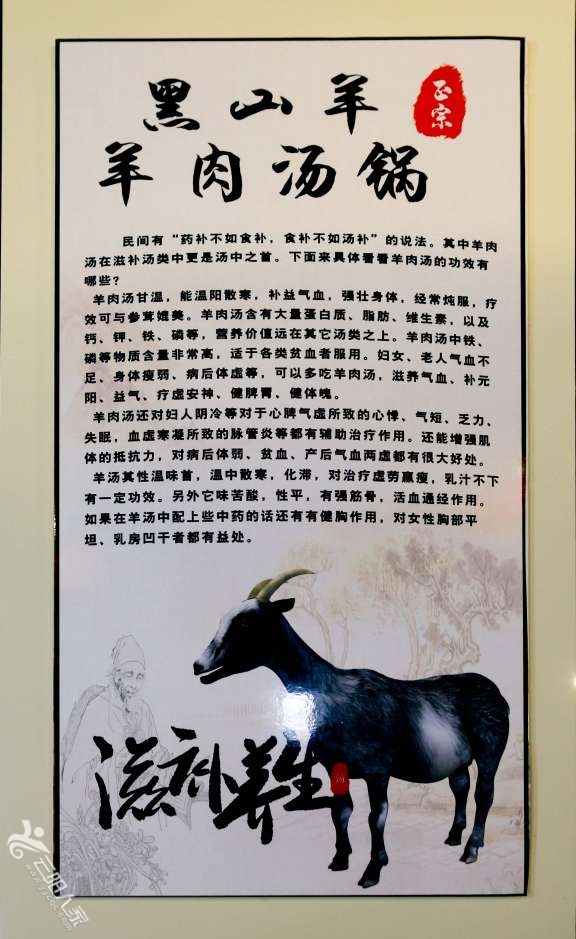 黑山羊
正宗
羊肉汤锅
民间有“药补不如食补，食补不如汤补”的说法。其中羊肉
汤在滋补汤类中更是汤中之首。下面来具体看看羊肉汤的功效有
哪些？
羊肉汤甘温，能温阳散寒，补益气血，强壮身体，经常炖服，疗
效可与参茸媲美。羊肉汤含有大量蛋白质、脂肪、维生素，以及
钙、钾、铁、磷等，营养价值远在其它汤类之上。羊肉汤中铁、
磷等物质含量非常高，适于各类贫血者服用。妇女、老人气血不
足、身体瘦弱、病后体虚等，可以多吃羊肉汤，滋养气血、补元
阳、益气、疗虚安神、健脾胃、健体魄。
羊肉汤还对妇人阴冷等对于心脾气虚所致的心悸、气短、乏力、
失眠，血虚寒凝所致的脉管炎等都有辅助治疗作用。还能增强肌
体的抵抗力，对病后体弱、贫血、产后气血两虚都有很大好处。
羊汤其性温味首，温中散寒，化滞，对治疗虚劳羸瘦，乳汁不下
有一定功效。另外它味苦酸，性平，有强筋骨，活血通经作用。
如果在羊汤中配上些中药的话还有有健胸作用，对女性胸部平
坦、乳房凹干者都有益处。
滋补养生
云阳人家
www.yycqc.com